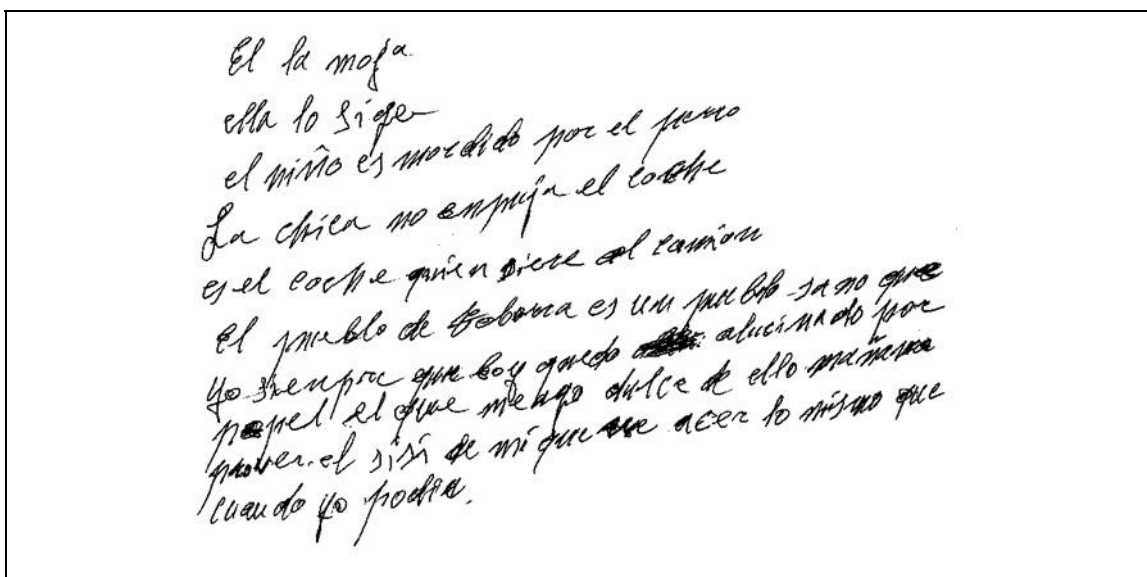 El la moja
ella lo sige
el niño es mordido por el perro
La chica no empuja el coche
es el coche quien el camión
El pueblo de Tobarra es un pueblo sano que
yo siempre que boy quedo alucinado por
papel el que mengo dulce de ello mañana
prover el sisi de mi que acer lo mismo que
cuando yo podia.